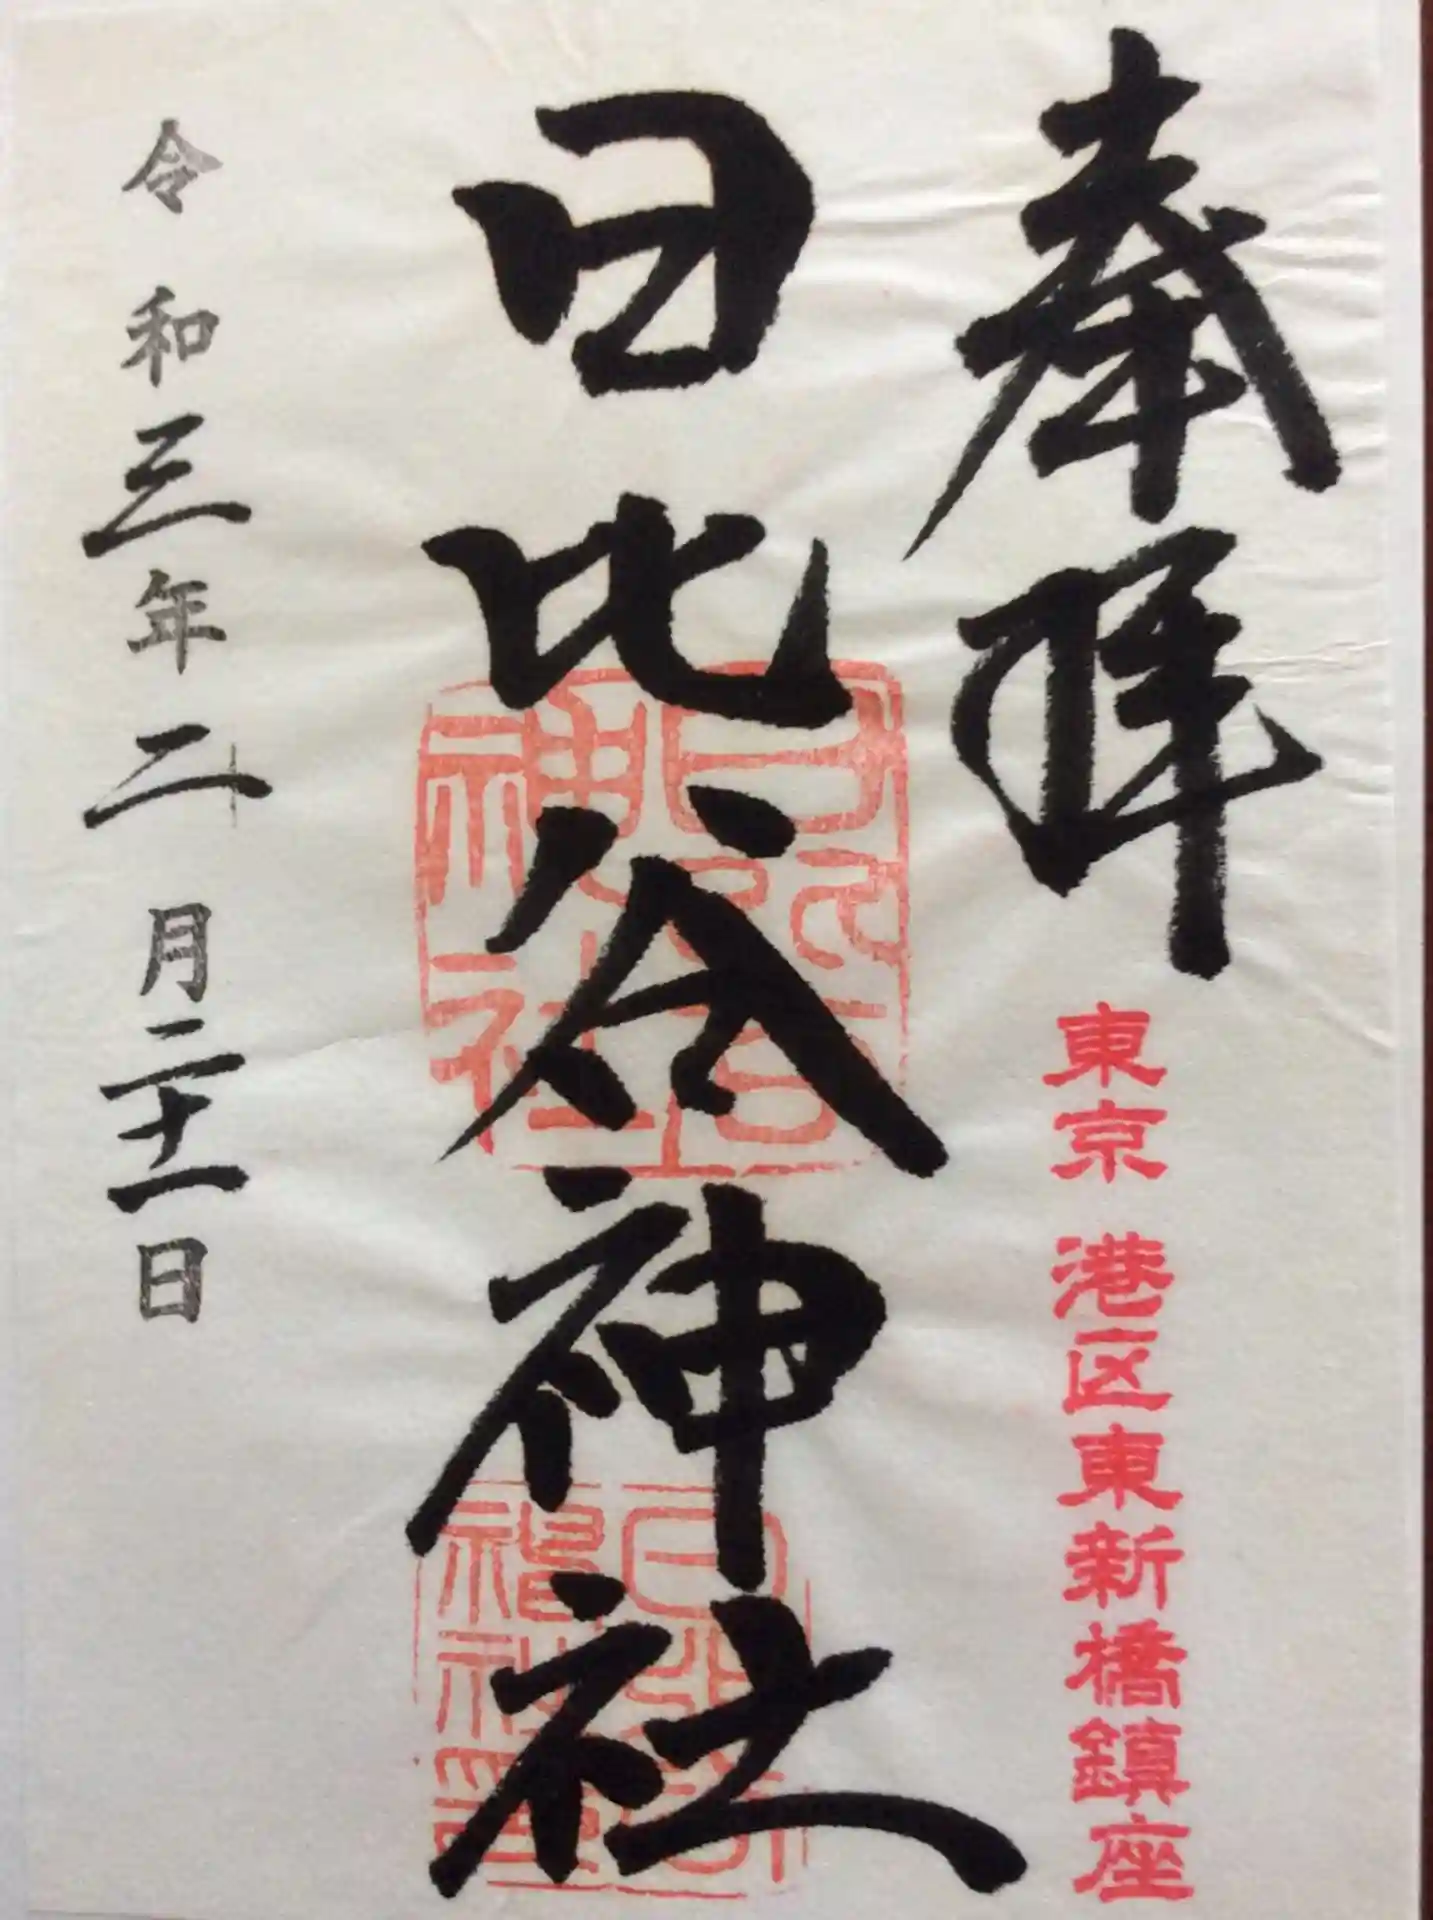 奉拝
東京 港区東新橋鎮座
日比谷神社
日比谷神社
令和三年二月二十一日